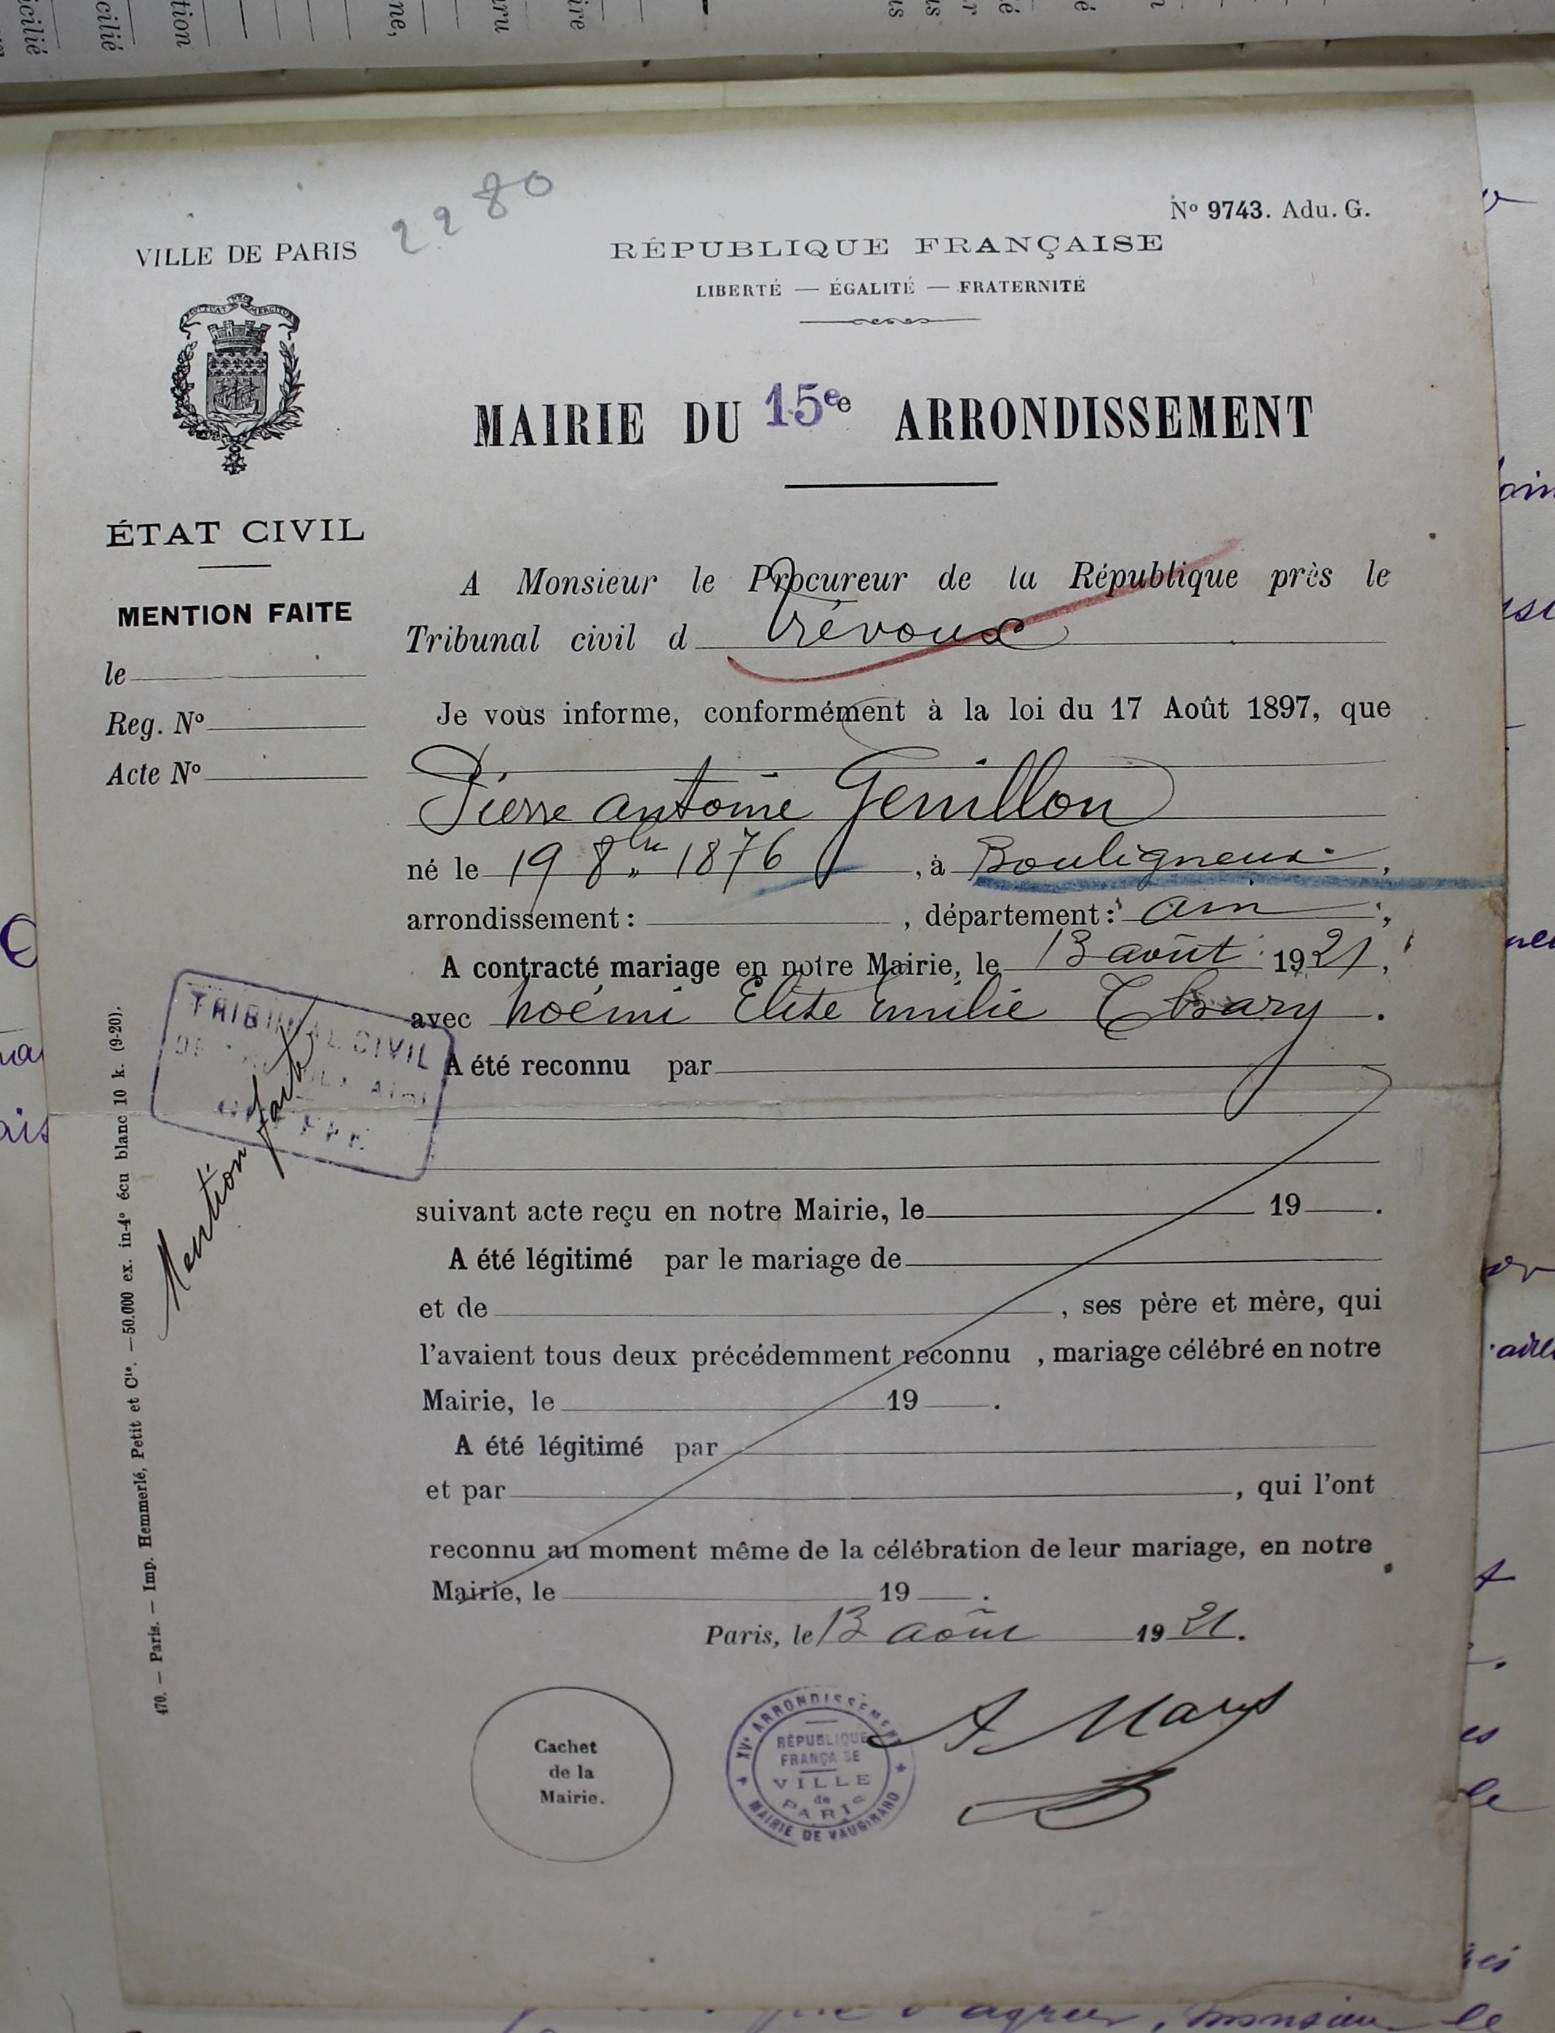 2280
N° 9743. Adu. G.
VILLE DE PARIS
RÉPUBLIQUE FRANÇAISE
LIBERTÉ — ÉGALITÉ — FRATERNITÉ
MAIRIE DU 15e e ARRONDISSEMENT
ÉTAT CIVIL
MENTION FAITE
le
Reg. N°
Acte N°
A Monsieur le Procureur de la République près le
Tribunal civil d Trévoux
Je vous informe, conformément à la loi du 17 Août 1897, que
Pierre Antoine Genillon
né le 19 8bre 1876, à Bouligneux,
arrondissement: , département: Ain,
A contracté mariage en notre Mairie, le 13 août 1921,
avec Noémi Elise Emilie
A été reconnu par
suivant acte reçu en notre Mairie, le 19 .
A été légitimé par le mariage de
et de , ses père et mère, qui
l'avaient tous deux précédemment reconnu , mariage célébré en notre
Mairie, le 19 .
A été légitimé par
et par , qui l'ont
reconnu au moment même de la célébration de leur mariage, en notre
Mairie, le 19 .
Paris, le 13 août 1921.
TRIBUNAL CIVIL
Mention faite
470. — Paris. — Imp. Hemmerlé, Petit et Cie. — 50.000 ex. in-4° écu blanc 10 k. (9-20).
Cachet
de la
Mairie.
XVe ARRONDISSEMENT
RÉPUBLIQUE
FRANÇAISE
VILLE
de
PARIS
MAIRIE DE VAUGIRARD